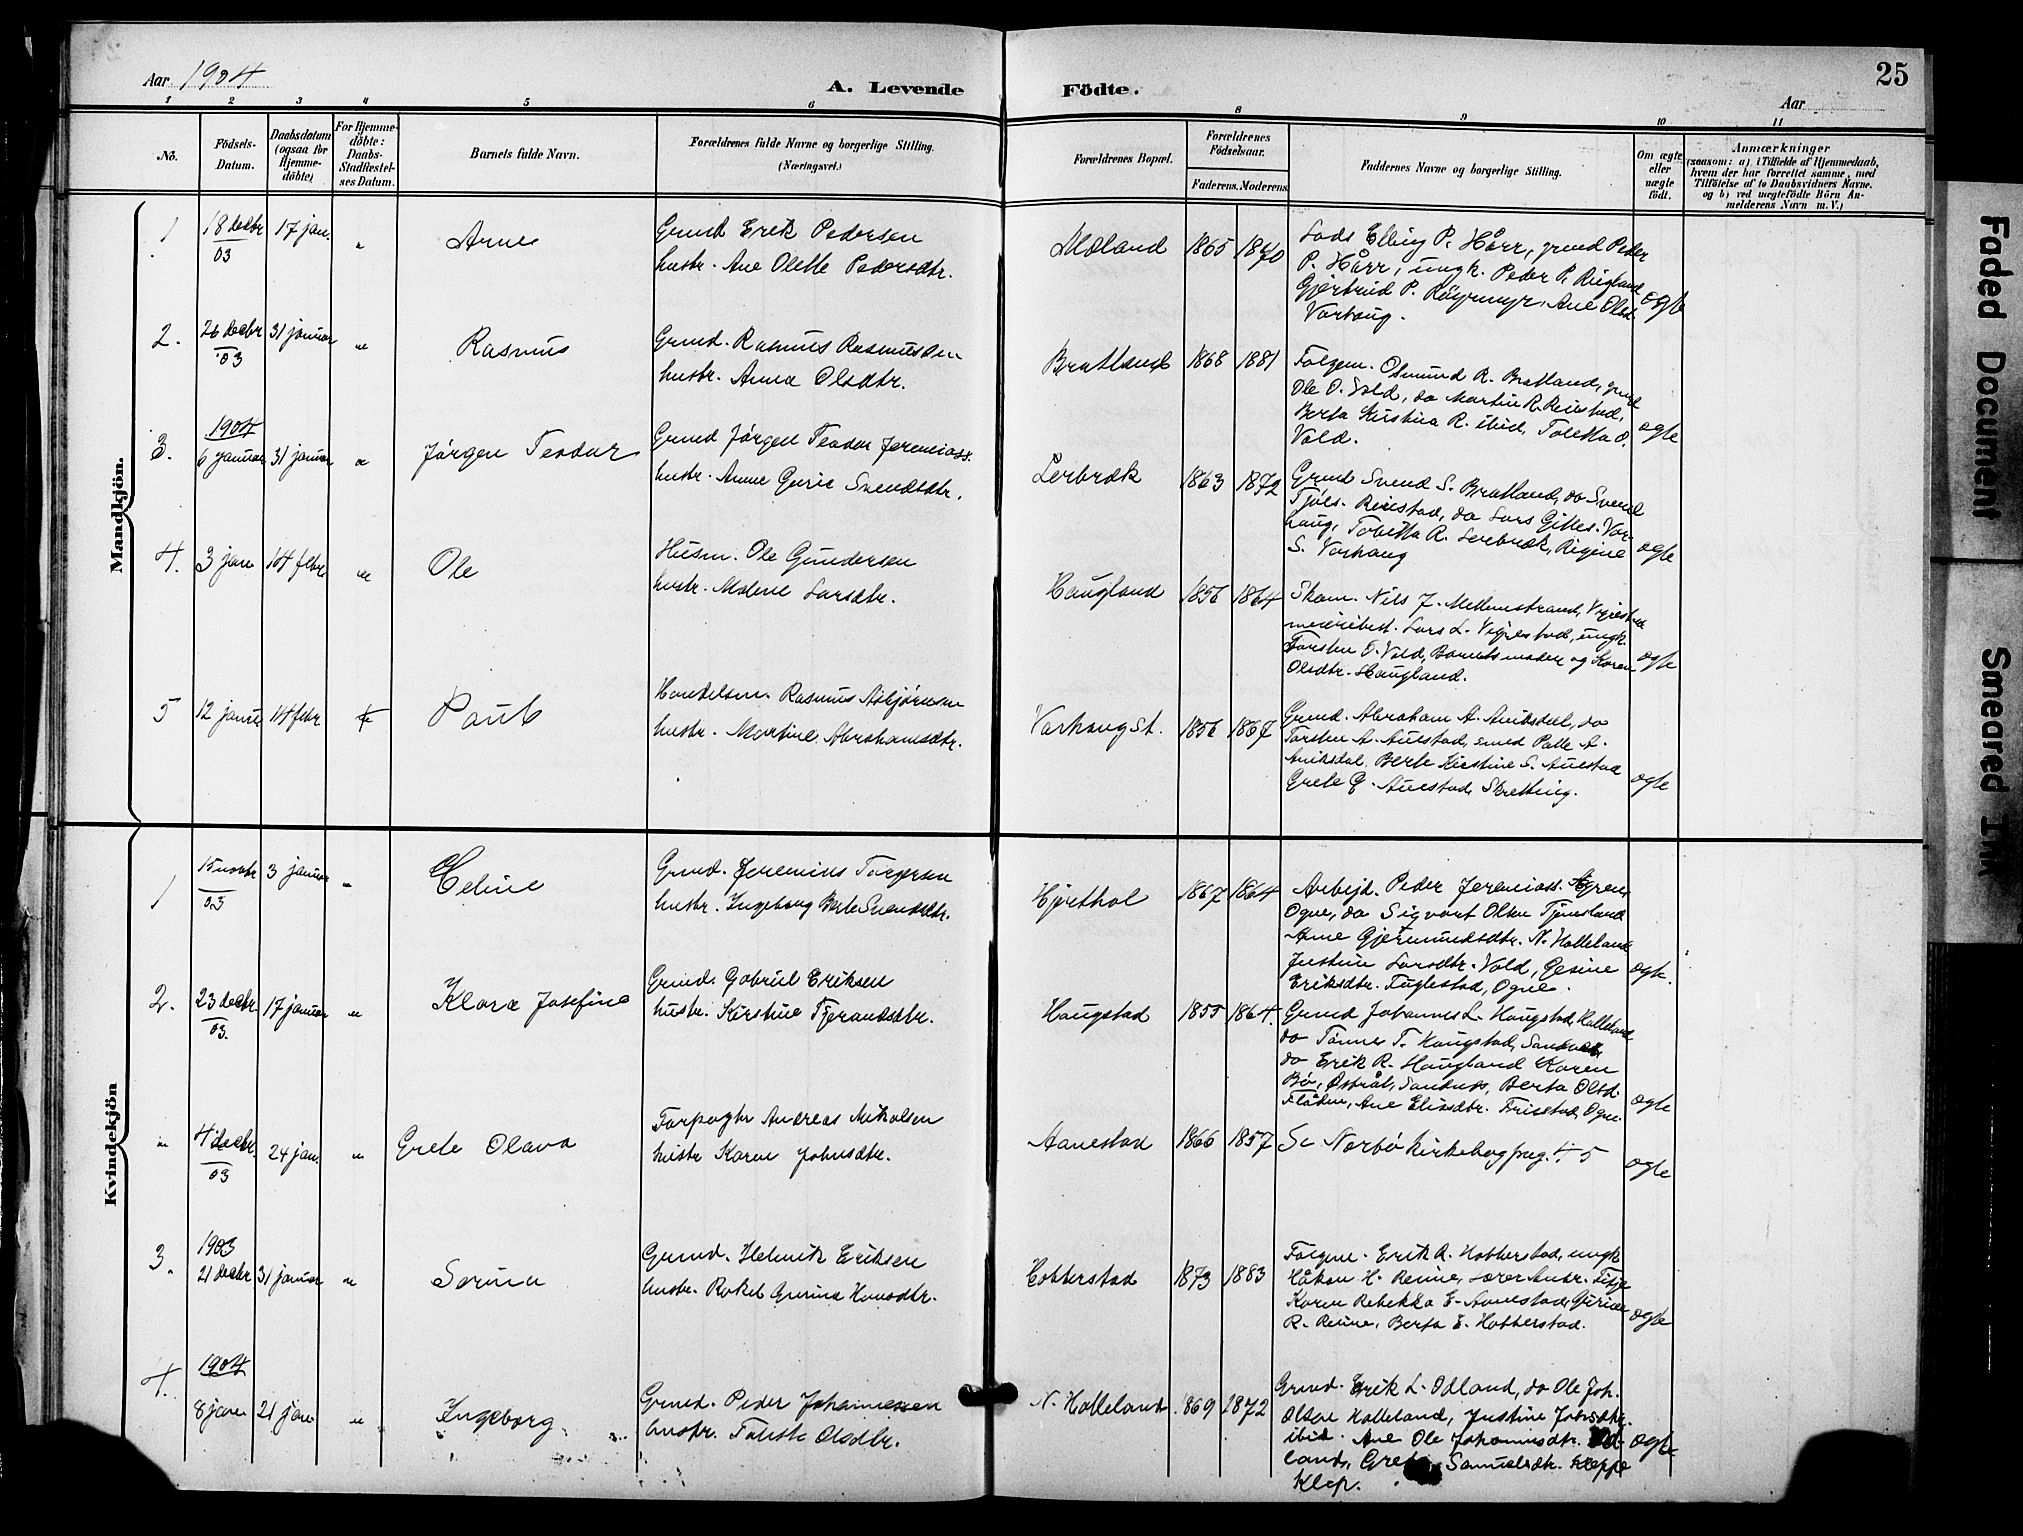 Aar 1904
A. Levende Födte.
Aar
25
1 2 3 4 5 6 8 9 10 11
No.
Födsels-Datum.
Daabsdatum (ogsaa for Hjemme-döbte)
For Hjemme-döbte: Daabs-Stadfæstel-ses Datum.
Barnets fulde Navn.
Forældrenes fulde Navne og borgerlige Stilling. (Næringsvei.)
Forældrenes Bopæl.
Forældrenes Födselsaar.
Faderens. Moderens.
Faddernes Navne og borgerlige Stilling.
Om ægte eller uægte födt.
Anmærkninger
(saasom: a) i Tilfælde af Hjemmedaab, hvem der har forrettet samme, med Tilföielse af to Daabsvidners Navne, og b) ved uægtefödte Börn An-melderens Navn m. V.)
Mandkjön.
1 18 decbr 03 17 jan. " Arne
Grmd Erik Pedersen
hustr. Ane Olette Pedersdtr.
Mæland 1865 1870
Lods Elling P. Hårr, grmd Peder
P. Hårr, ungk. Peder P. Rugland
Gjertrud P. Røyrmyr, Ane Olsd.
Varhaug.
ægte
2. 26 decbr 03 31 januar " Rasmus
Grmd. Rasmus Rasmussen
hustr. Anna Olsdtr.
Bratland 1868 1881
Følgem. Osmund R. Bratland, grmd
Ole O. Vold, do Martin R. Reiestad,
Berta Kristina R. ibid, Toletta O.
Vold.
ægte
3. 1904 6 januar 31 januar " Jørgen Teodor
Grmd Jørgen Teodor Jeremiass.
hustr. Anne Gurie Svendsdtr.
Lerbræk 1863 1872
Grmd Svend S. Bratland, do Svend
Tjøls. Reiestad, do Lars Gitles. Var
haug, Tobitta R. Lerebræk, Regine
S. Varhaug
ægte
4. 3 jan 14 febr " Ole
Husm. Ole Gundersen
hustr. Malene Larsdtr.
Haugland 1856 1864
Skom. Nils J. Mellemstrand, Vigrestad
meieribest. Lars L. Vigrestad, ungk.
Torsten O. Vold, Barnets moder og Karen
Olsdtr. Haugland.
ægte
5 12 januar 14 febr Paul
Handelsm. Rasmus Asbjørnsen
hustr. Martine Abrahamsdtr.
Varhaug St. 1856 1867
Grmd. Abraham A. Aniksdal, do
Torsten A. Auestad, smed Palle A.
Aniksdal, Berte Kirstine S. Auestad
Grete G. Auestad, Skretting.
ægte
Kvindekjön
1 15 novbr 03 3 januar " Celine
Grmd. Jeremias Torgersen
hustr. Ingeborg Berte Svendsdtr.
Hjorthol 1867 1864
Arbejd. Peder Jeremiass.
Ogne, do Sigvart Olsen Tjensland
Anne Gjermundsdtr. N.Holleland
Justine Larsdtr. Vold, Gesine
Eriksdtr. Fuglestad, Ogne.
ægte
2. 23 decbr 03. 17 januar " Klara Josefine
Grmd. Gabriel Eriksen
hustr. Kirstine Tjerandsdtr.
Haugstad 1855 1864.
Grmd Johannes L. Haugstad, Holleland
do Tønnes T. Haugstad,
do Erik R. Haugland Karen
Bø, Østråt, Sandnes, Berta Olsd
Flåten, Ane Elisdtr. Frisestad, Ogne
ægte
" 4 decbr. 03 24 jan. " Grete Olava
Forpagtr Andreas Nikolsen
hustr Karen Johnsdtr.
Aanestad 1866 1857
Se Nærbø kirkebog pag. 4. 5
ægte
3. 1903 21 decbr 31 januar " Sorina
Grmd. Helmik Eriksen
hustr. Rakel Gurina Hansdtr.
Hobberstad 1873 1883
Følgem. Erik R. Hobberstad, ungk
Håkon H. Reime, Lærer Andr. Fitje
Karen Rebekka E. Aanestad, Gurine
R. Reime, Berta E. Hobberstad.
ægte
4. 1904 8 jan 21 jan " Ingeborg
Grmd. Peder Johannessen
hustr. Olsdtr.
N. Holleland 1869 1872
Grmd. Erik L. Odland, do Ole Joh.
Olsen Holleland, Justine Johsdtr.
ibid. Ane Ole Johannisdtr. Od-
land, Grete Samuelsdtr. Kleppe
Klep.
ægte
Faded Document
Smeared Ink